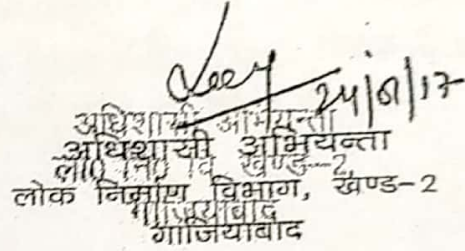 24/01/17
अधिशासी अभियन्ता
अधिशासी अभियन्ता
लो0 नि0 वि0 खण्ड-2
लोक निर्माण विभाग, खण्ड-2
गाजियाबाद
गाजियाबाद